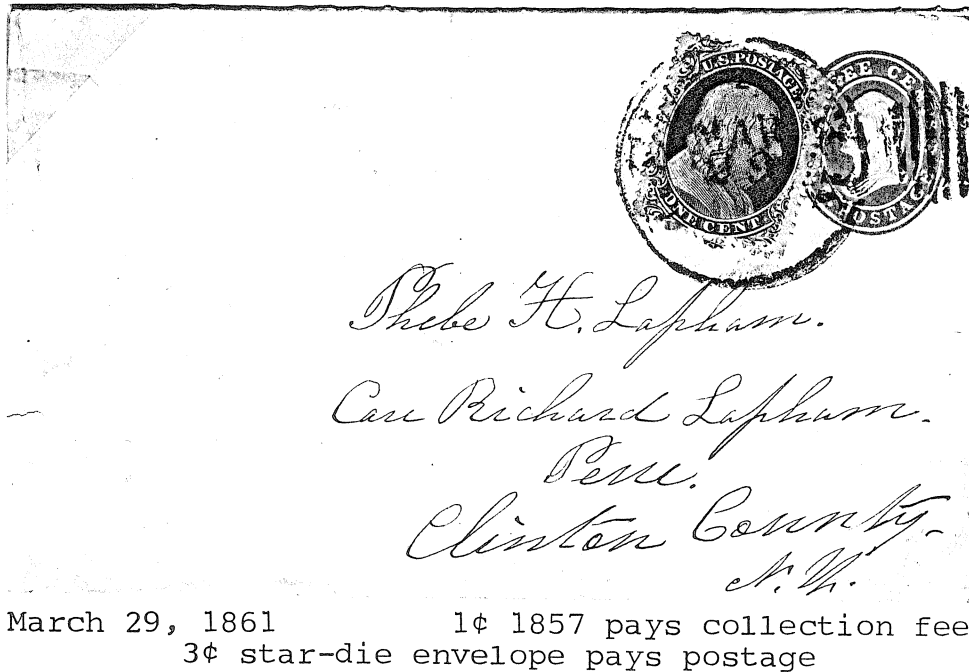 U.S.POSTAGE
ONE CENT
POSTAGE
Phebe H. Lapham.
Care Richard Lapham.
Peru.
Clinton County.
N.Y.
March 29, 1861 1¢ 1857 pays collection fee
3¢ star-die envelope pays postage